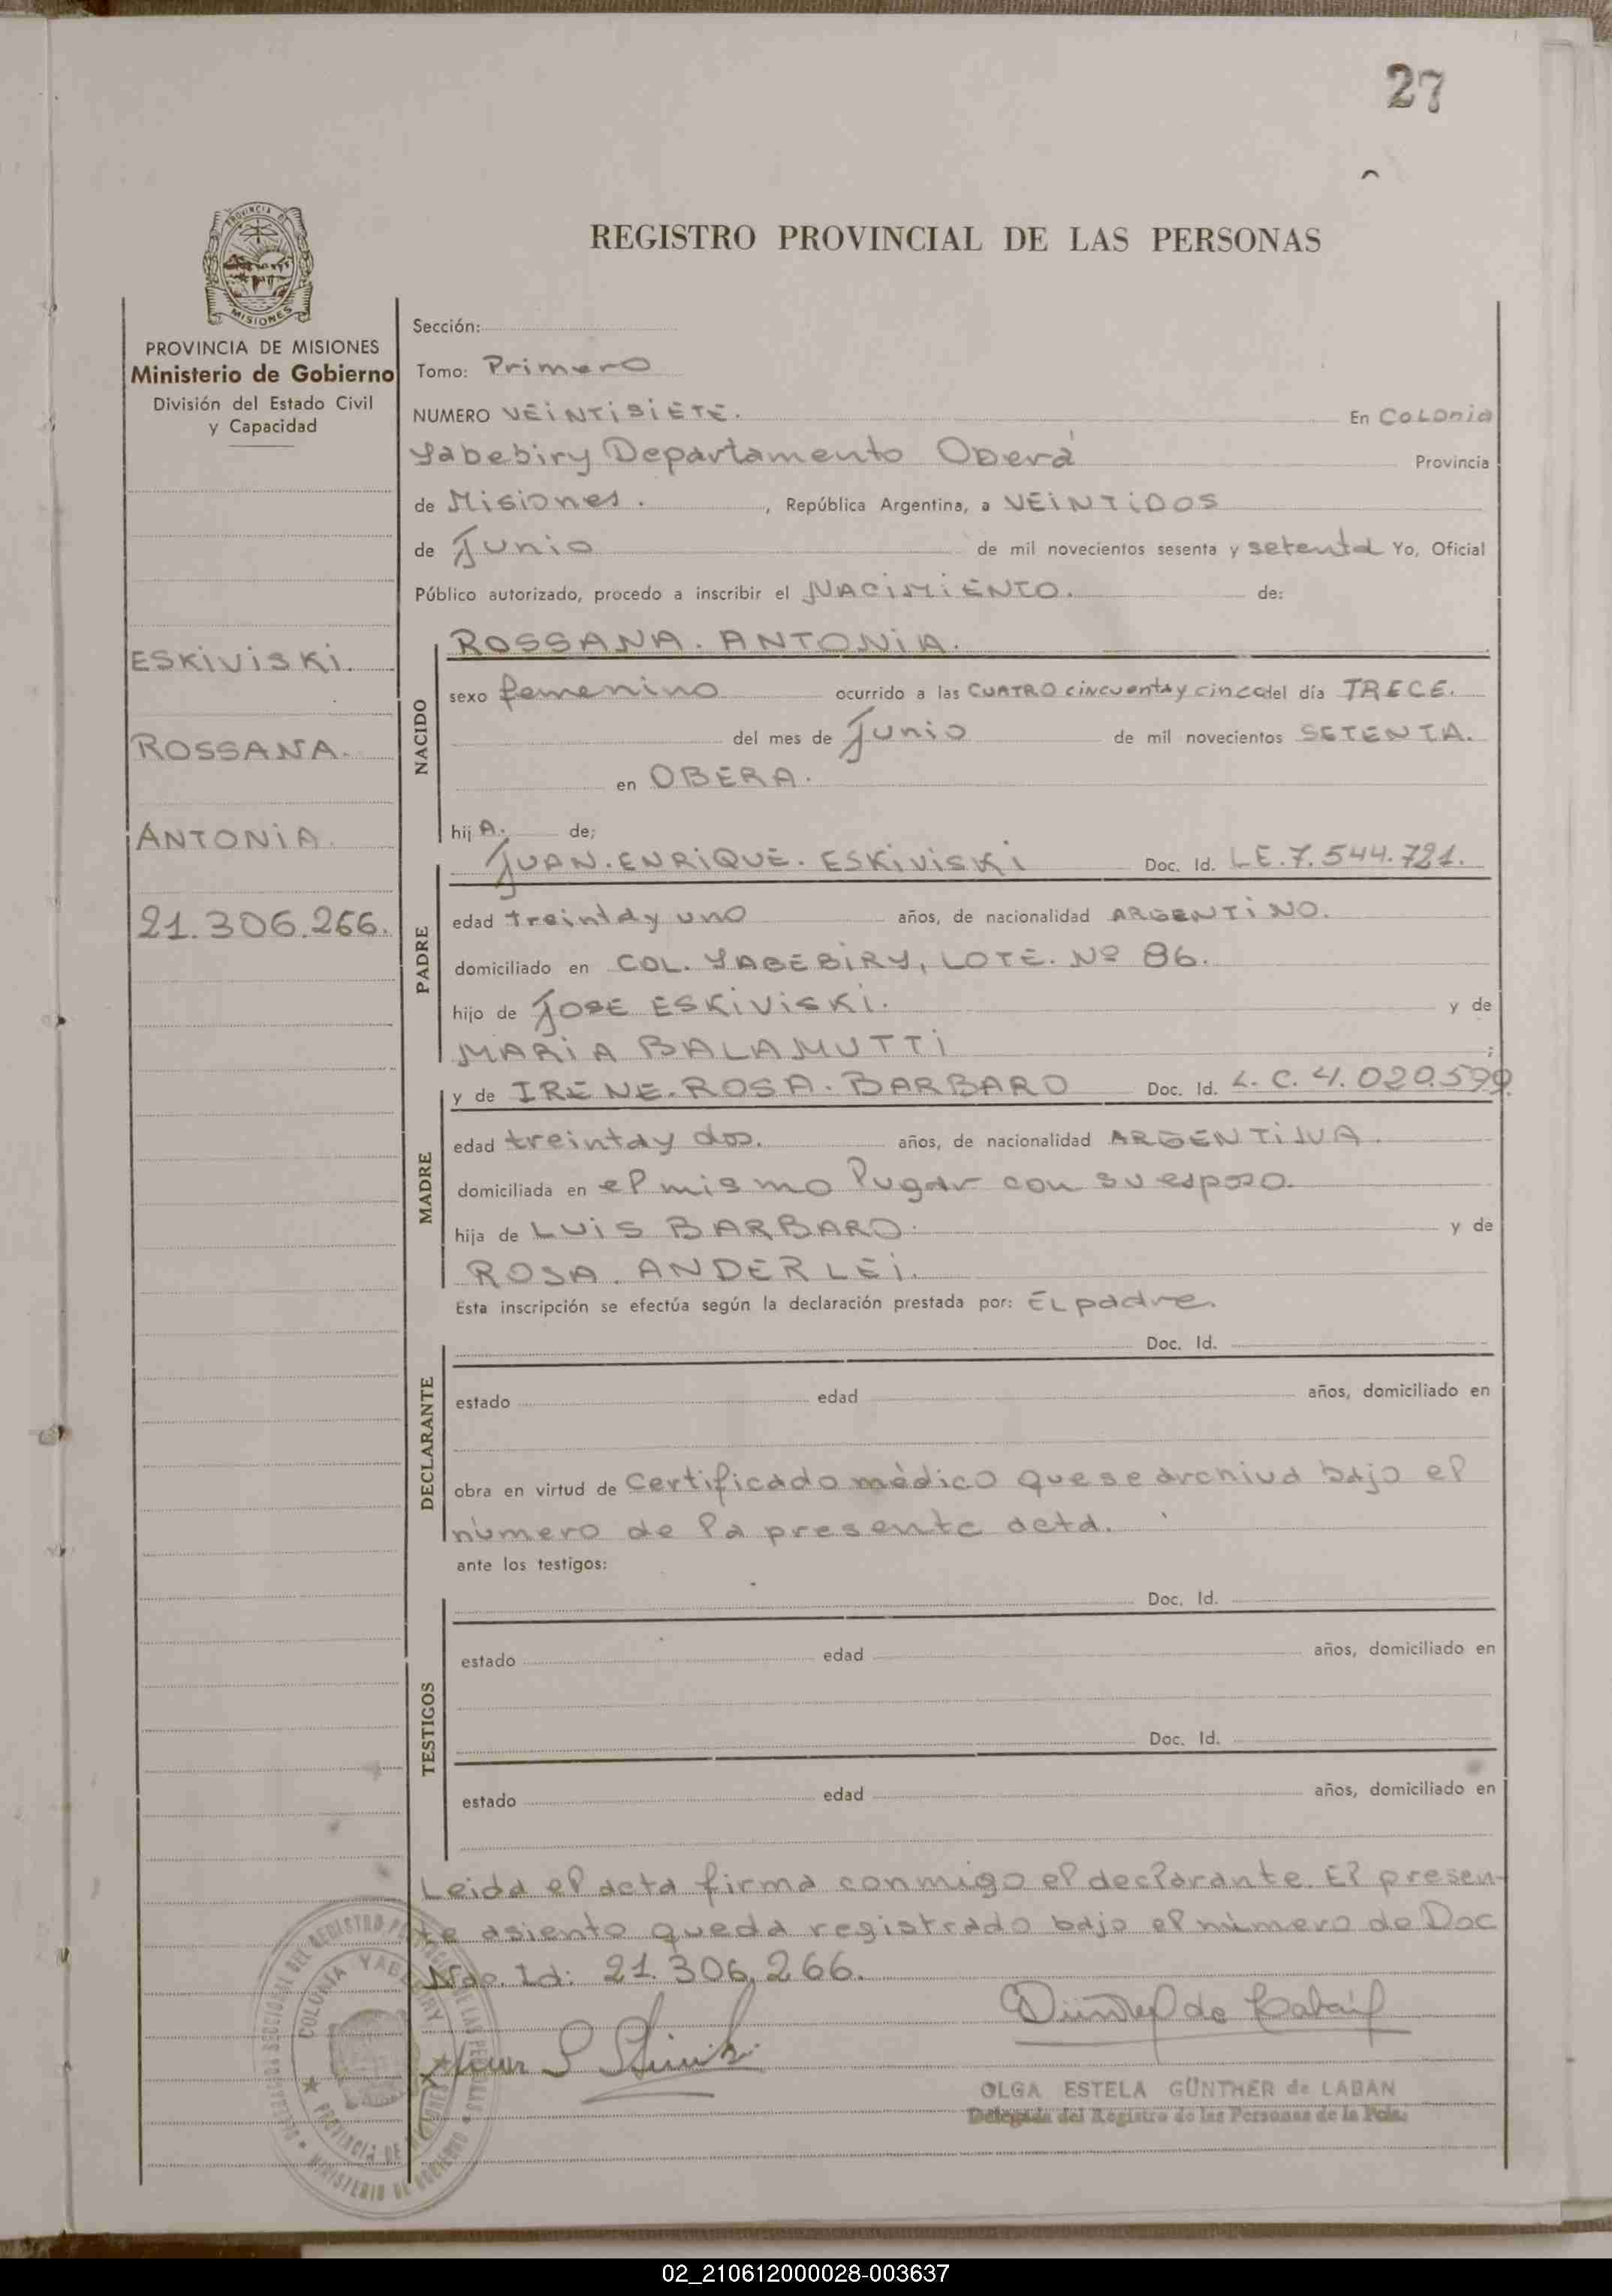 27
REGISTRO PROVINCIAL DE LAS PERSONAS
PROVINCIA DE
MISIONES
PROVINCIA DE MISIONES
Ministerio de Gobierno
División del Estado Civil
y Capacidad
ESKIVISKI.
ROSSANA.
ANTONIA.
21.306.266.
Sección:
Tomo: Primero
NUMERO VEINTISIETE. En COLONIA
Yabebiry Departamento Oberá Provincia
de Misiones. , República Argentina, a VEINTIDOS
de Junio de mil novecientos sesenta y setenta Yo, Oficial
Público autorizado, procedo a inscribir el NACIMIENTO. de:
NACIDO
ROSSANA. ANTONIA.
sexo femenino ocurrido a las CUATRO cincuenta y cinco del día TRECE.
del mes de Junio de mil novecientos SETENTA.
en OBERA.
hij A. de;
PADRE
JUAN. ENRIQUE. ESKIVISKI Doc. Id. LE. 7.544.721.
edad treinta y uno años, de nacionalidad ARGENTINO.
domiciliado en COL. YABEBIRY, LOTE. Nº 86.
hijo de JOSE ESKIVISKI. y de
MARIA BALAMUTTI ;
MADRE
y de IRENE. ROSA. BARBARO Doc. Id. L. C. 4.020.599.
edad treinta y dos. años, de nacionalidad ARGENTINA.
domiciliada en el mismo lugar con su esposo.
hija de LUIS BARBARO. y de
ROSA. ANDERLEI.
Esta inscripción se efectúa según la declaración prestada por: EL padre.
DECLARANTE
Doc. Id.
estado edad años, domiciliado en
obra en virtud de Certificado médico que se archiva bajo el
número de la presente acta.
ante los testigos:
TESTIGOS
Doc. Id.
estado edad años, domiciliado en
Doc. Id.
estado edad años, domiciliado en
Leida el acta firma conmigo el declarante. El presen-
te asiento queda registrado bajo el número de Doc
Nac. Id: 21.306.266.
OLGA ESTELA GÜNTHER de LABAN
Delegada del Registro de las Personas de la Pcia.
COLONIA YABEBIRY
PROVINCIA DE MISIONES
MINISTERIO DE GOBIERNO
02_210612000028-003637